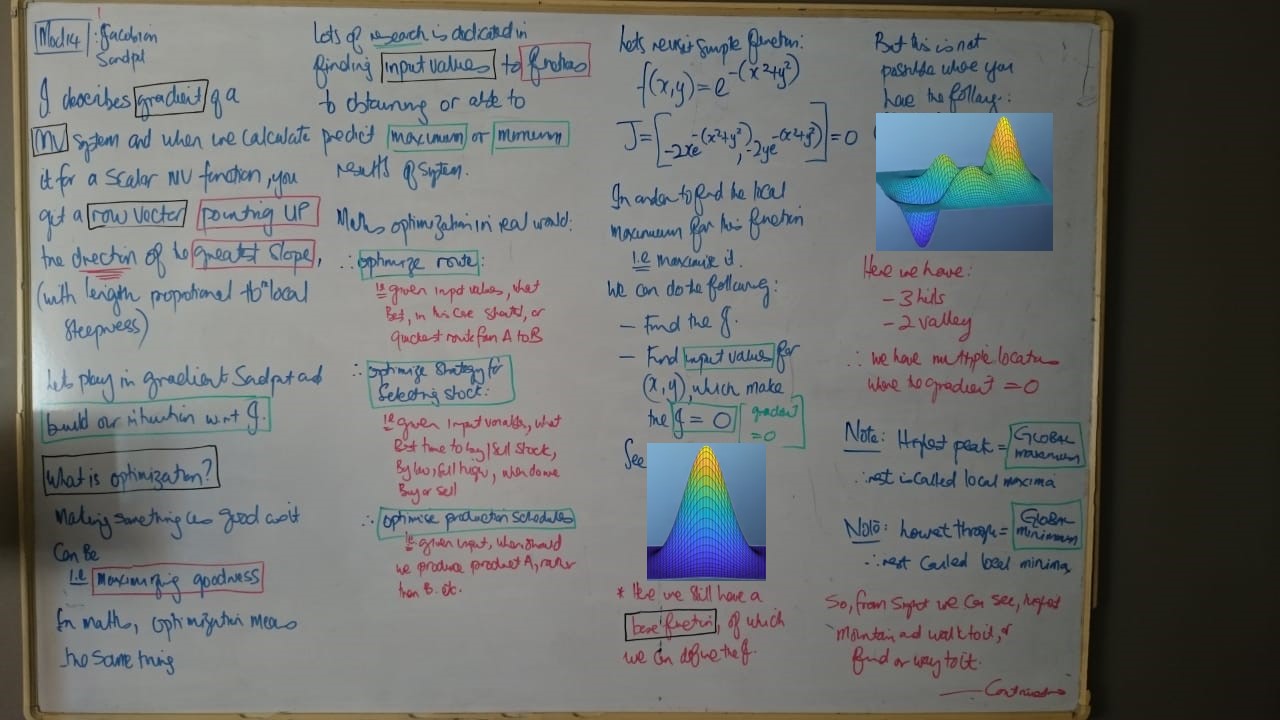 Mod14 : Jacobian
Sandpit
J describes gradient of a
MV system and when we calculate
it for a scalar MV function, you
get a row vector pointing UP
the direction of the greatest slope,
(with length proportional to local
steepness)
Lets play in gradient Sandpit and
build our intuition w.r.t J.
What is optimization?
Making something as good as it
Can Be
i.e maximizing goodness
In maths, optimization means
the same thing
Lots of research is dedicated in
finding input values to functions
to obtaining or able to
predict maximum or minimum
results of system.
Maths optimization in real world:
∴ optimize route:
i.e given input values, what
Best, in this case shortest, or
quickest route from A to B
∴ optimize strategy for
Selecting stock:
i.e given input variables, what
Best time to buy/sell stock,
By low, sell high, when do we
Buy or sell
∴ optimise production schedules
i.e given input, when should
we produce product A, rather
than B. etc.
Lets revisit simple function:
f(x,y) = e^-(x²+y²)
J = [-2xe^-(x²+y²), -2ye^-(x²+y²)] = 0
In order to find the local
maximum for this function
i.e maximize it.
We can do the following:
- Find the J.
- Find input values for
(x,y), which make
the J = 0 gradient
= 0
See
* Here we still have a
base function, of which
we can define the J.
But this is not
possible where you
have the following:
Here we have:
- 3 hills
- 2 valley
∴ we have multiple locations
where the gradient = 0
Note: Highest peak = GLOBAL
maximum
∴ rest is called local maxima
Note: lowest through = GLOBAL
minimum
∴ rest called local minima
So, from Sandpit we can see, highest
mountain and walk to it, or
find our way to it.
— Continued